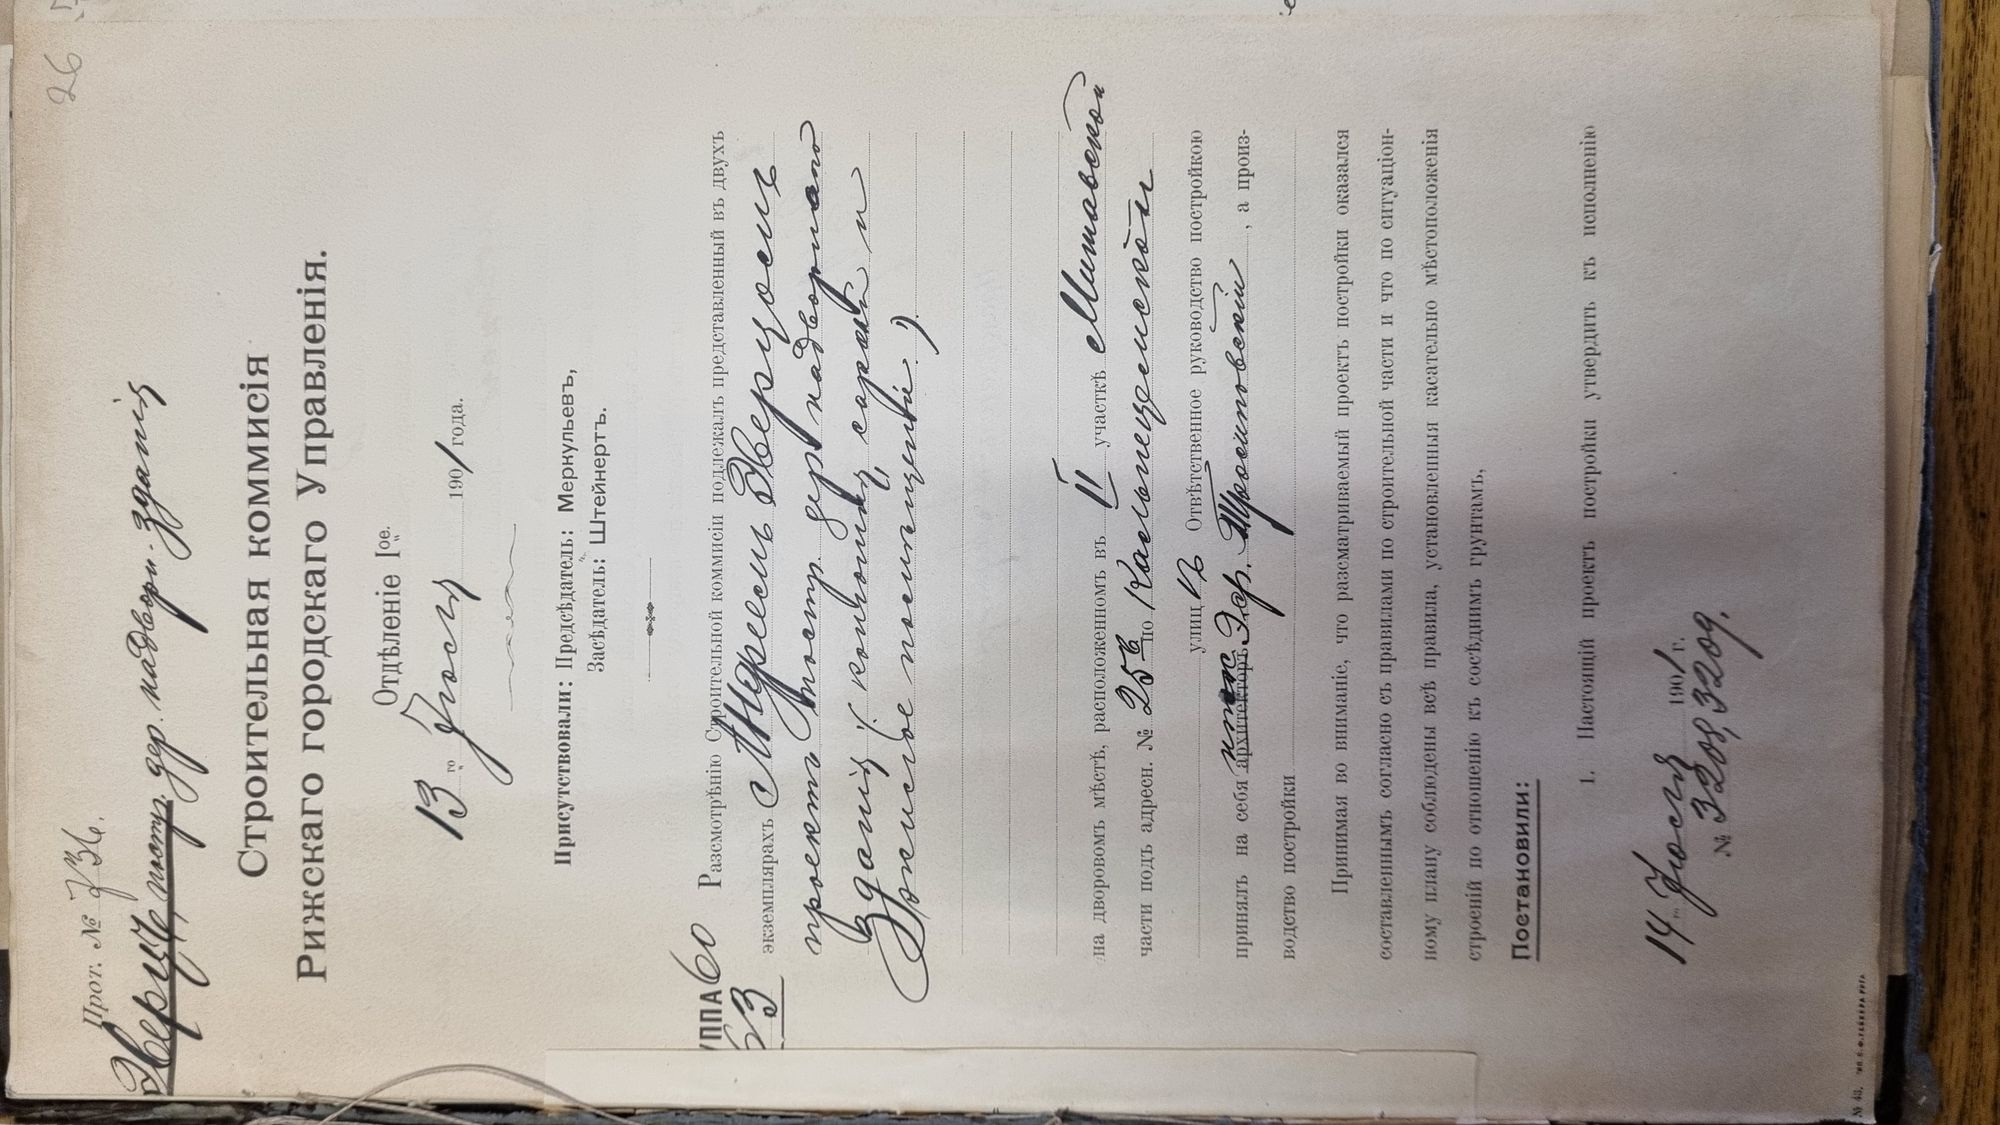 26
Прот. № 736.
Эверцъ, постр. дер. надворн. зданія
Строительная коммисія
Рижскаго городскаго Управленія.
Отдѣленіе I ое.
13 го Іюля 1901 года.
Присутствовали: Предсѣдатель: Меркульевъ,
Засѣдатель: Штейнертъ.
УППА 60
53
Разсмотрѣнію Строительной коммисіи подлежалъ представленный въ двухъ
экземплярахъ Эверцомъ
проектъ постр. дер. надворнаго
зданія (конюшня, сарай и
жилое помѣщеніе.)
на дворовомъ мѣстѣ, расположенномъ въ II участкѣ Митавской
части подъ адресн. № 25в по
улицѣ Отвѣтственное руководство постройкою
принялъ на себя архитекторъ инж. Эдр. Тромповскій, а произ-
водство постройки
Принимая во вниманіе, что разсматриваемый проектъ постройки оказался
составленнымъ согласно съ правилами по строительной части и что по ситуаціон-
ному плану соблюдены всѣ правила, установленныя касательно мѣстоположенія
строеній по отношенію къ сосѣднимъ грунтамъ,
Постановили:
1. Настоящій проектъ постройки утвердить къ исполненію
14 го Іюля 1901 г.
№ 3208, 3209.
№ 43.